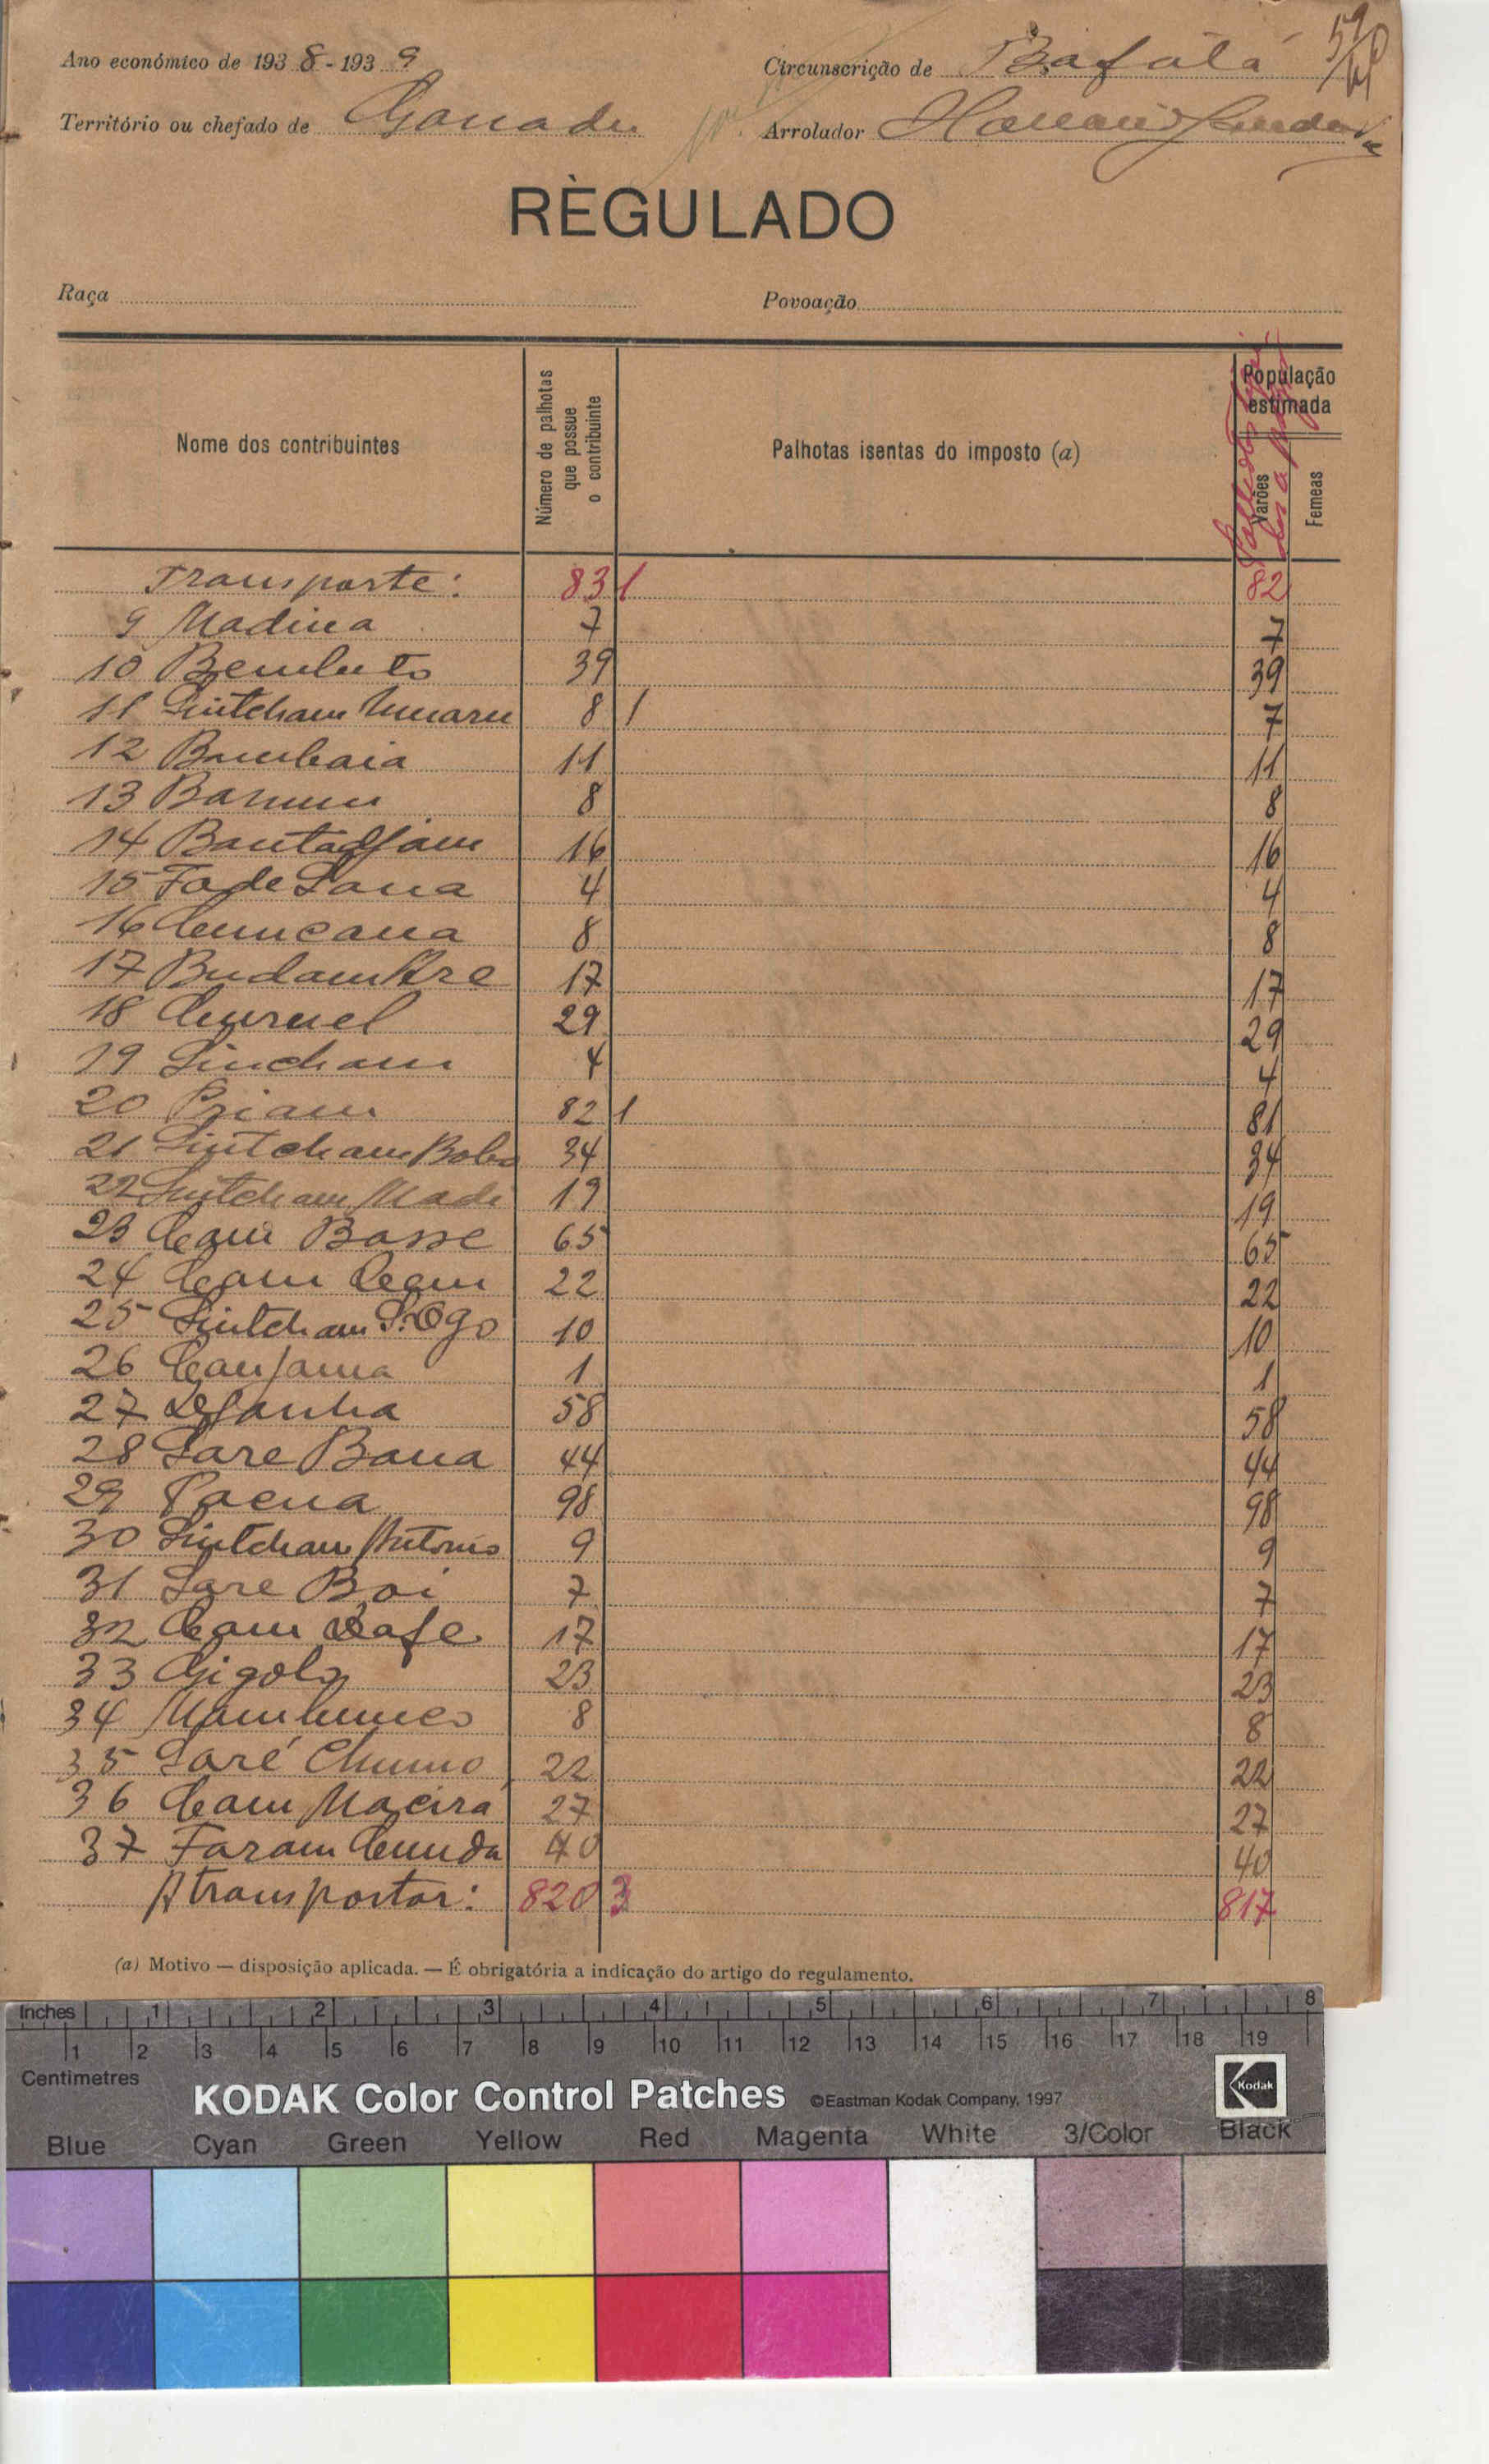 Ano económico de 1938-1939
Circunscrição de Bafatá
Território ou chefado de Ganadu
Arrolador
RÈGULADO
Raça
Povoação
Nome dos contribuintes
Número de palhotas que possue o contribuinte
Palhotas isentas do imposto (a)
População estimada
Varões
Femeas
Transporte: 83 1 82
9 Madina 7 7
10 39 39
11 Sintcham Umaru 8 1 7
12 Bambaia 11 11
13 8 8
14 Bantadjam 16 16
15 Fode Sana 4 4
16 Cumcana 8 8
17 17 17
18 29 29
19 Sincham 4 4
20 Priam 82 1 81
21 Sintcham Bobo 34 34
22 Sintcham Made 19 19
23 Cam Basse 65 65
24 Cam 22 22
25 Sintcham S. Ogo 10 10
26 Canjama 1 1
27 58 58
28 Sare Bana 44 44
29 Paena 98 98
30 Sintcham Antonio 9 9
31 Sare Boi 7 7
32 Cam 17 17
33 23 23
34 8 8
35 Saré 22 22
36 Cam Macira 27 27
37 Faram Cunda 40 40
A transportar: 820 3 817
(a) Motivo — disposição aplicada. — É obrigatória a indicação do artigo do regulamento.
Inches 1 2 3 4 5 6 7 8
1 2 3 4 5 6 7 8 9 10 11 12 13 14 15 16 17 18 19
Centimetres
KODAK Color Control Patches ©Eastman Kodak Company, 1997 Kodak
Blue Cyan Green Yellow Red Magenta White 3/Color Black